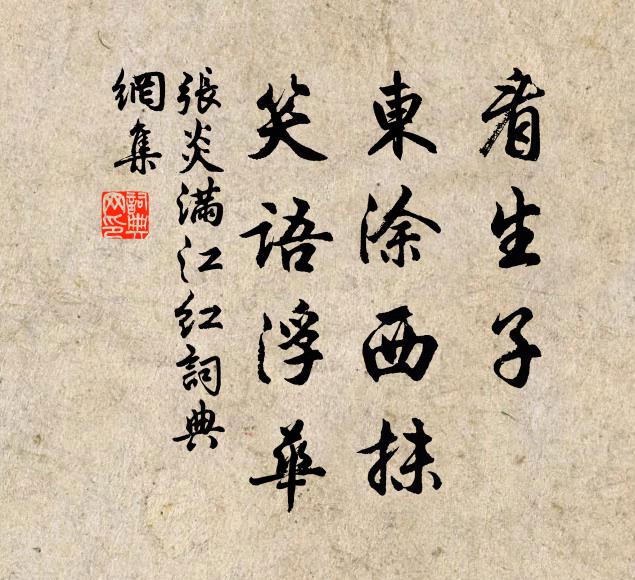 看生子
東涂西抹
笑語浮華
張炎滿江红詞典
網集
詞典
网印